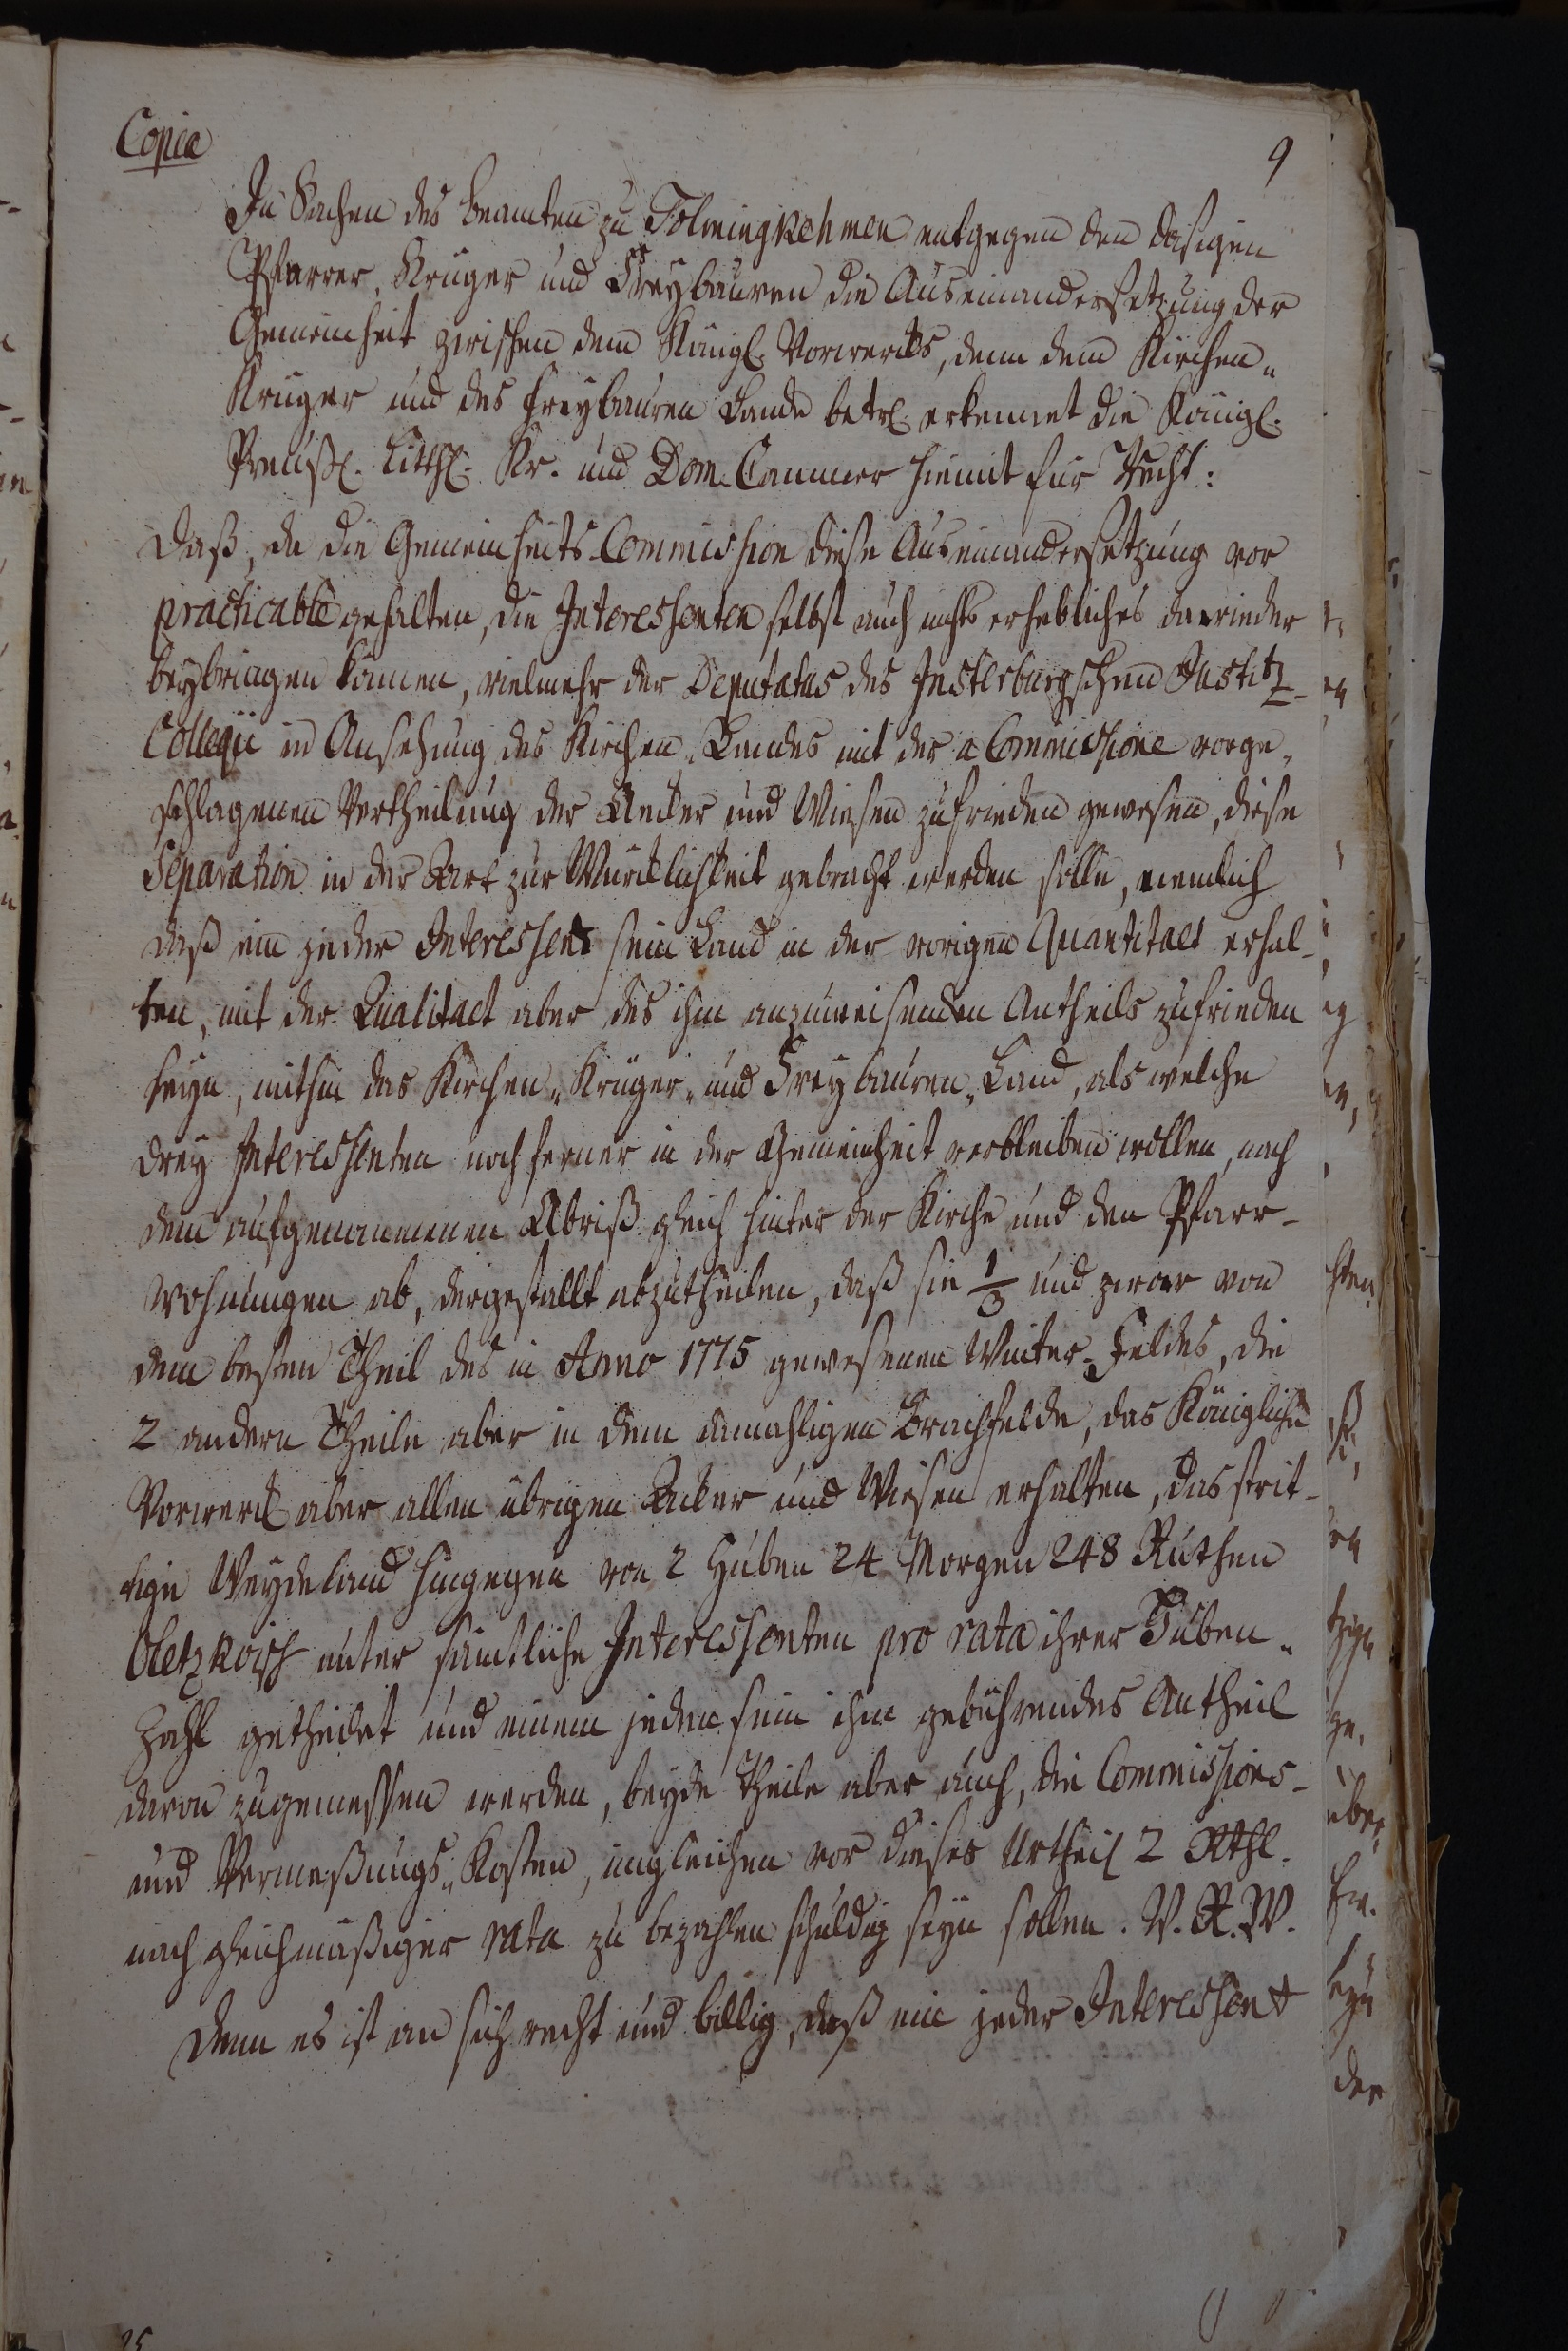 Copia
9
In Sachen des Beamten zu Tolmingkehmen entgegen den dasigen
Pfarrer, Krüger und Freybauren die Auseinandersetzung der
Gemeinheit zwischen dem Königl. Vorwercks, denn dem Kirchen„
Krüger und des Freybauren Lande betr. erkennet die Königl.
Preußl. Litth. Kr. und Dom. Cammer hiemit für Recht:
Daß, da die Gemeinheits-Commission diese Auseinandersetzung vor
practicable gehalten, die Interessenten selbst auch nichts erhebliches darwieder
beybringen können, vielmehr der Deputatus des Insterburgschen Justitz-
Collegii in Ansehung des Kirchen„Landes mit der a Commissione vorge„
schlagenen Vertheilung der Aecker und Wiesen zufrieden gewesen, diese
Separation in der Art zur Würcklichkeit gebracht werden solle, nemlich
daß ein jeder Interessent sein Land in der vorigen Quantitaet erhal-
ten, mit der Qualitaet aber des ihm anzuweisenden Antheils zufrieden
seyn, mithin das Kirchen„ Krüger„ und Freybauren„Land, als welche
drey Interessenten noch ferner in der Gemeinheit verbleiben wollen, nach
dem aufgenommenen Abriß gleich hinter der Kirche und den Pfarr-
Wohnungen ab, dergestallt abzutheilen, daß sie 1/3 und zwar von
dem besten Theil des in Anno 1775 gewesenen Winter-Feldes, die
2 andern Theile aber in dem damahligen Brachfelde, das Königliche
Vorwerck aber allen übrigen Acker und Wiesen erhalten, das strit-
tige Weydeland hingegen von 2 Huben 24 Morgen 248 Ruthen
Oletzkoisch unter sämtliche Interessenten pro rata ihrer Huben„
Zahl getheilet und einem jeden sein ihm gebührendes Antheil
davon zugemessen werden, beyde Theile aber auch, die Commissions-
und Vermeßungs„Kosten, ingleichen vor dieses Urtheil 2 Rthl.
nach gleichmäßiger rata zu bezahlen schuldig seyn sollen. V. R. W.
Denn es ist an sich recht und billig, daß ein jeder Interessent